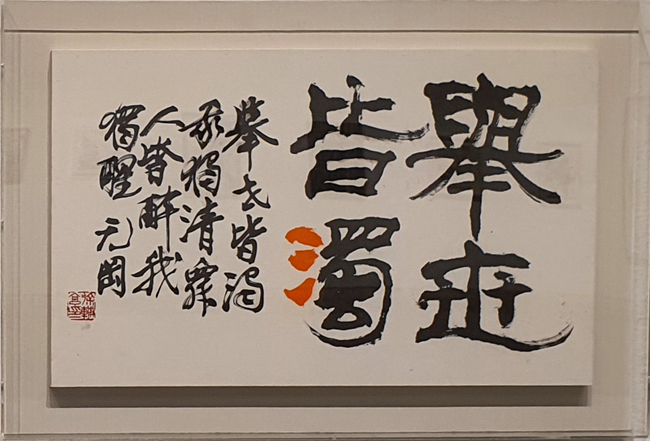 舉世
皆濁
舉世皆濁
我獨清眾
人皆醉我
獨醒